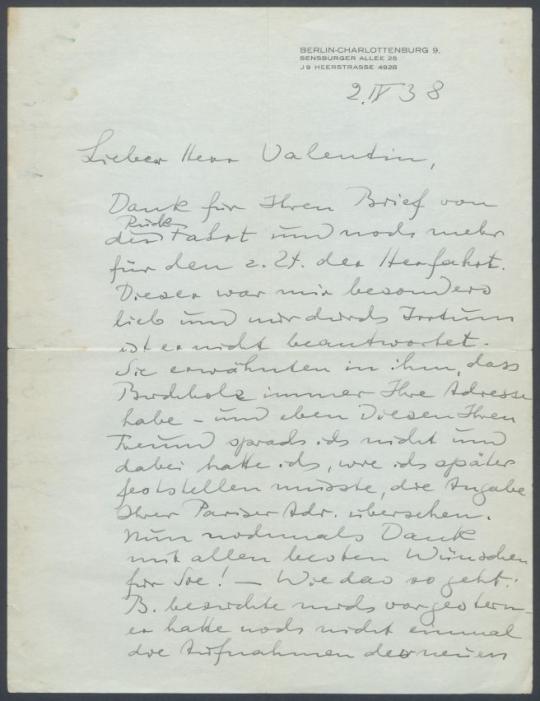 BERLIN-CHARLOTTENBURG 9.
SENSBURGER ALLEE 26
J 9 HEERSTRASSE 4928
2. IV 38
Lieber Herr Valentin,
Dank für Ihren Brief von
Rück-
der Fahrt und noch mehr
für den z. Zt. der Herfahrt.
Dieser war mir besonders
lieb und nur durch Irrtum
ist er nicht beantwortet.
Sie erwähnten in ihm, dass
Buchholz immer Ihre Adresse
habe – und eben Diesen Ihren
Freund sprach ich nicht und
dabei hatte ich, wie ich später
feststellen musste, die Angabe
Ihrer Pariser Adr. übersehen.
Nun nochmals Dank
mit allen besten Wünschen
für Sie! – Wie das so geht:
B. besuchte mich vorgestern –
er hatte noch nicht einmal
die Aufnahmen der neuen